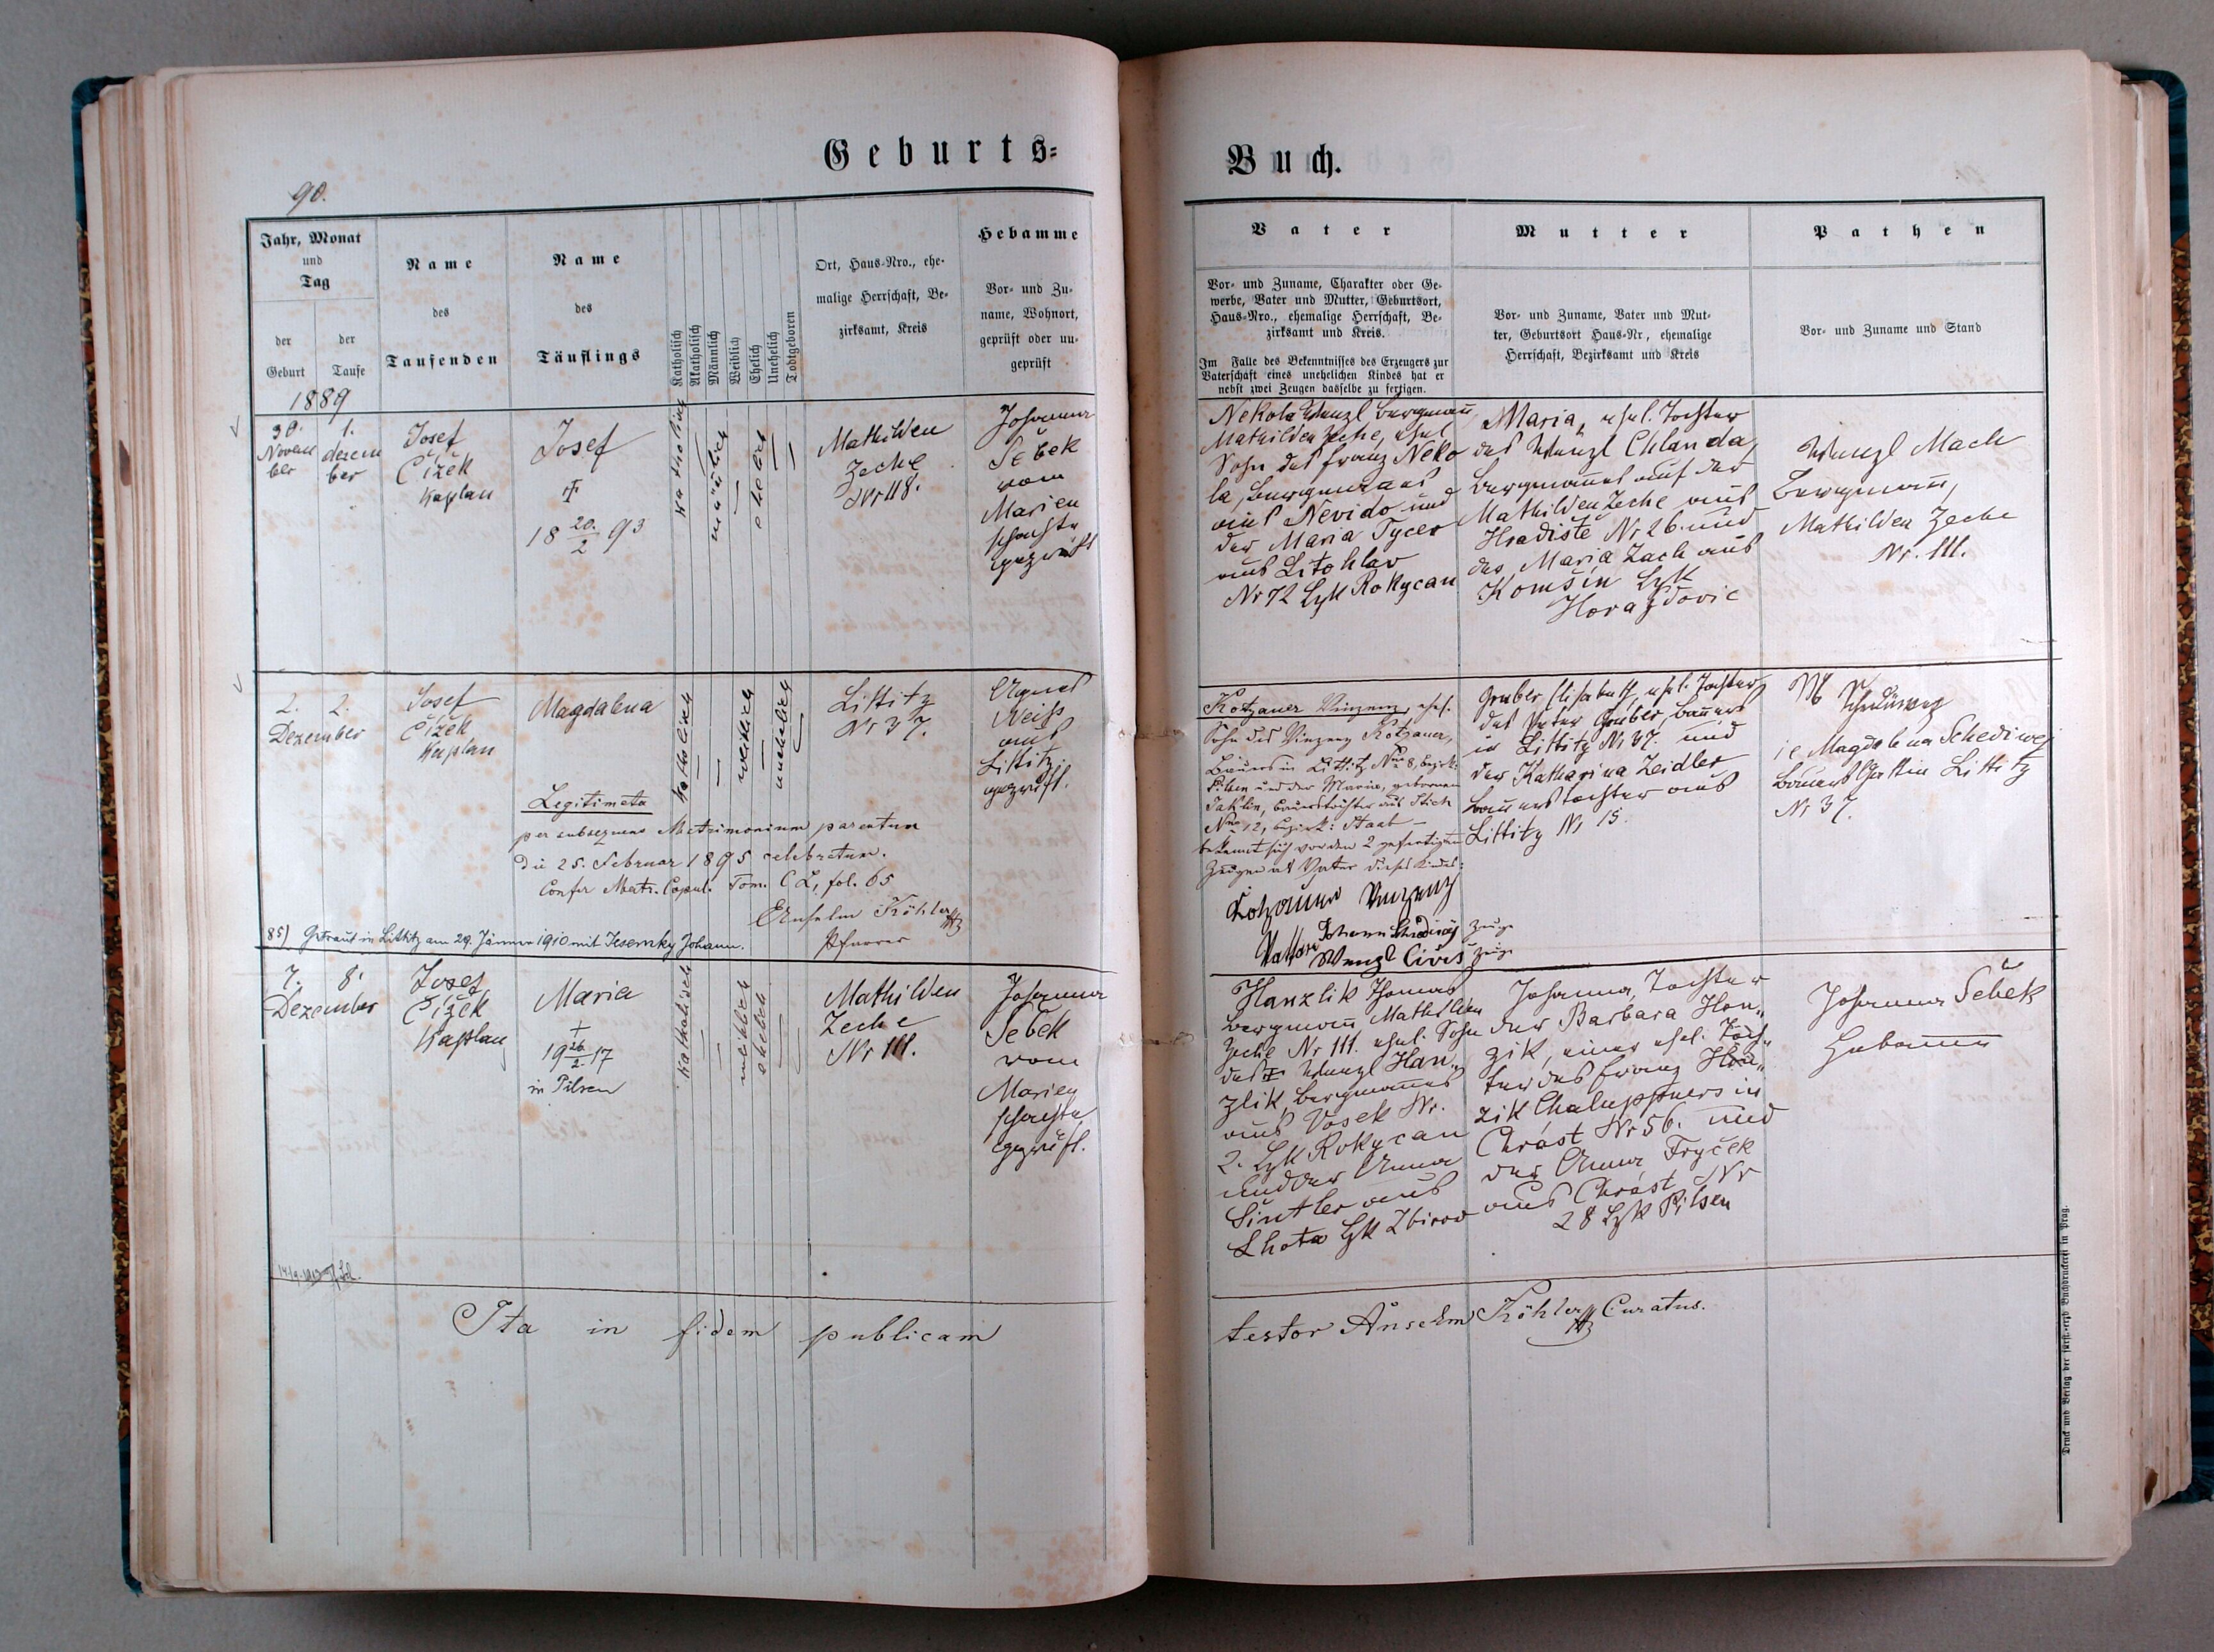 Geburts=
90.
Jahr, Monat
und
Tag
der
Geburt
der
Taufe
Name
des
Taufenden
Name
des
Täuflings
Katholisch
Akatholisch
Männlich
Weiblich
Ehelich
Unehelich
Todtgeboren
Ort, Haus-Nro., ehe-
malige Herrschaft, Be-
zirksamt, Kreis
Hebamme
Vor- und Zu-
name, Wohnort,
geprüft oder un-
geprüft
1889
30.
Novem
ber
1.
dezem
ber
Josef
Čížek
Kaplan
Josef
†
18 20/2 93
Katholisch
männlich
ehelich
Mathilden
Zeche
Nr 118.
Johanna
Šebek
vom
Marien
schachte
geprüft
2. 2.
Dezember
Josef
Čížek
Kaplan
Magdalena
Katholisch
weiblich
unehelich
Littitz
Nr 37.
Agnes
Weiss
aus
Littitz
geprüft.
Legitimata
per subsequens Matrimonium parentum
die 25. Februar 1895 celebratum.
Confer Matr. Copul. Tom. CL, fol. 65
Anselm Köhler
Pfarrer
85) Getraut in Littitz am 29. Jänner 1910 mit Jesensky Johann.
7. 8.
Dezember
Josef
Čížek
Kaplan
Maria
†
19 26/2 17
in Pilsen
Katholisch
weiblich
ehelich
Mathilden
Zeche
Nr 111.
Johanna
Šebek
vom
Marien
schachte
geprüft.
Ita in fidem publicam
Buch.
Vater
Vor- und Zuname, Charakter oder Ge-
werbe, Vater und Mutter, Geburtsort,
Haus-Nro., ehemalige Herrschaft, Be-
zirksamt und Kreis.
Im Falle des Bekenntnisses des Erzeugers zur
Vaterschaft eines unehelichen Kindes hat er
nebst zwei Zeugen dasselbe zu fertigen.
Mutter
Vor- und Zuname, Vater und Mut-
ter, Geburtsort Haus-Nr, ehemalige
Herrschaft, Bezirksamt und Kreis
Pathen
Vor- und Zuname und Stand
Nekola Wenzl Bergmann
Mathilden Zeche, ehel.
Sohn des Franz Neko
la, Bergmannes
aus Nevido und
der Maria Tycer
aus Litohlav
Nr 72 Bzk Rokycan
Maria, ehel. Tochter
des Wenzl Chlanda,
Bergmannes auf der
Mathilden Zeche aus
Hradiste Nr 26. und
der Maria Zach aus
Komšin Bzk
Horaždovic
Wenzl Mach
Bergmann,
Mathilden Zeche
Nr. 111.
Kotzauer Vinzenz, ehel.
Sohn des Vinzenz Kotzauer,
Bauers in Littitz Nro 8, Bezirk:
Pilsen und der Maria, gebornen
Jaklin, Bauerstochter aus Stich
Nro 12, Bezirk: Staab -
bekennt sich vor den 2 gefertigten
Zeugen als Vater dieses Kindes:
Kotzauer Vinzenz
Vater
Johann Schediwý Zeuge
Wenzl Čiviš Zeuge
Gruber Elisabeth, ehel. Tochter
des Peter Gruber, Bauers
in Littitz Nr 37. und
der Katharina Zeidler
Bauerstochter aus
Littitz Nr 15.
ie Magdalena Schediwej
Bauers Gattin Littitz
Nr 37.
Hanzlik Thomas
Bergmann, Mathilden
Zeche Nr 111. ehel. Sohn
des Wenzl Han-
zlik, Bergmannes
aus Vosek Nr.
2. Bzk Rokycan
und der Anna
Šintler aus
Lhota Bzk Zbirov
Johanna, Tochter
der Barbara Hon-
zik, einer ehel. Toch-
ter des Franz Hon-
zik Chaluppners in
Chrást Nr 56. und
der Anna Fryček
aus Chrást Nr
28 Bzk Pilsen
Johanna Šebek
Hebamme
testor Anselm Köhler Curatus.
Druck und Verlag der fürst.-erzb. Buchdruckerei in Prag.